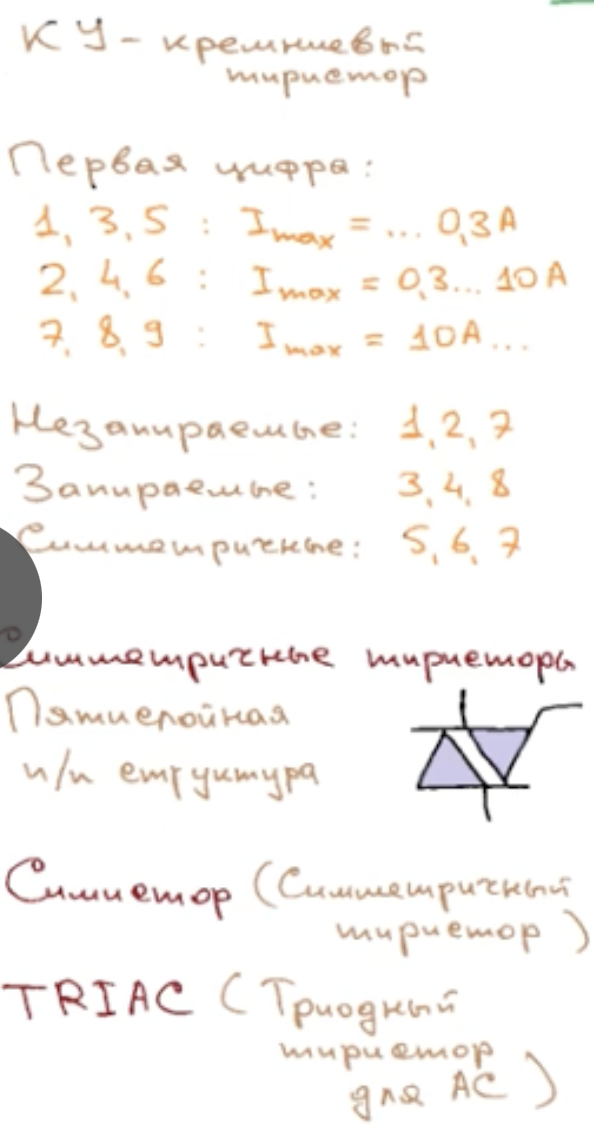 КУ - кремниевый
тиристор
Первая цифра:
1, 3, 5 : Imax = ... 0,3А
2, 4, 6 : Imax = 0,3... 10А
7, 8, 9 : Imax = 10А...
Незапираемые: 1, 2, 7
Запираемые: 3, 4, 8
Симметричные: 5, 6, 7
Симметричные тиристоры
Пятислойная
п/п структура
Симистор (Симметричный
тиристор)
TRIAC (Триодный
тиристор
для АС)